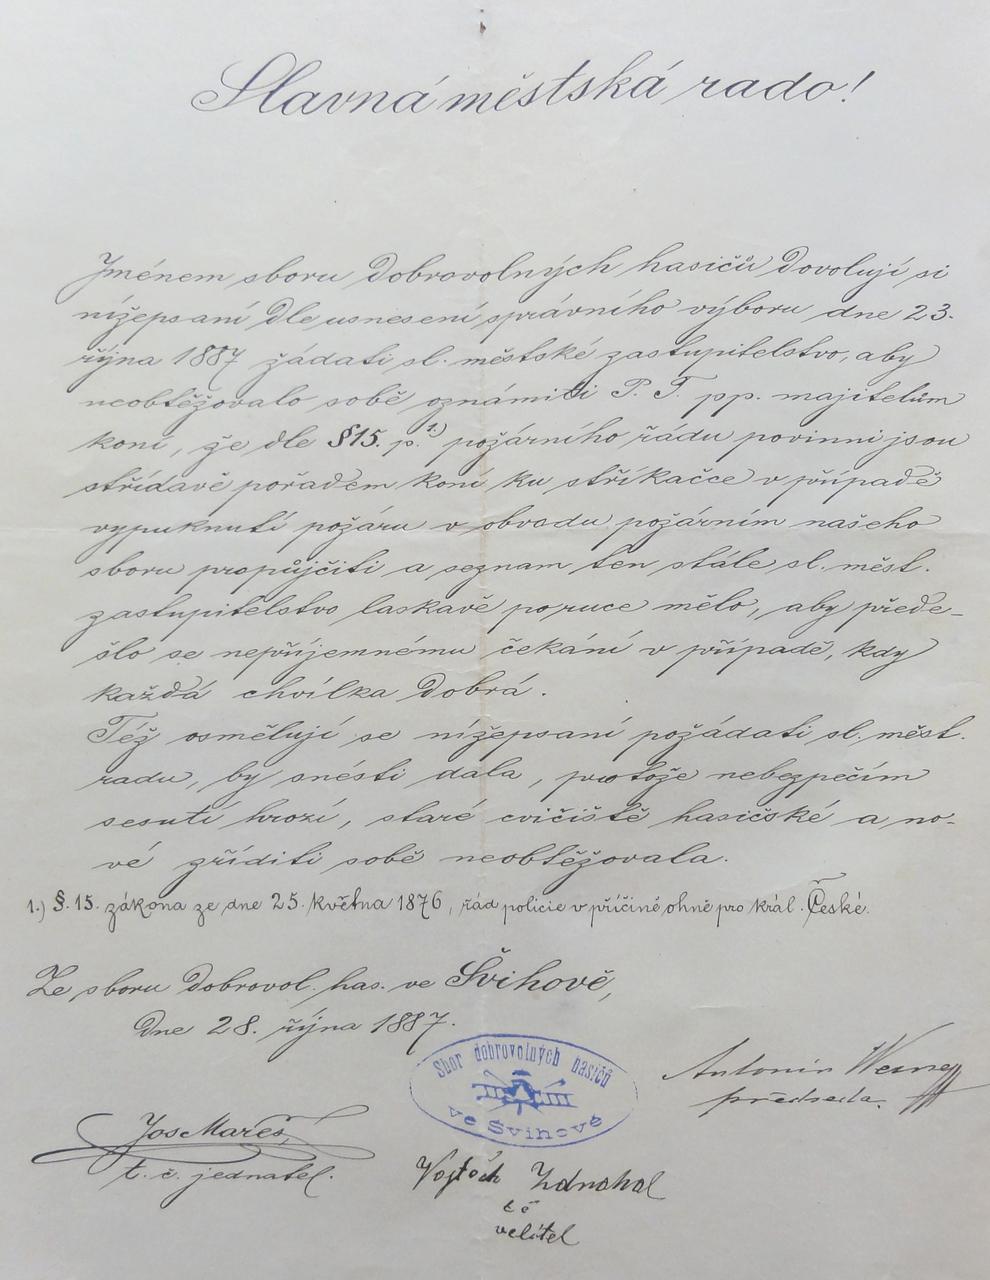 Slavná městská rado!
Jménem sboru dobrovolných hasičů dovolují si
nížepsaní dle usnesení správního výboru dne 23.
října 1887 žádati sl. městské zastupitelstvo, aby
neobtěžovalo sobě oznámiti P. T. pp. majitelům
koní, že dle §15. p.1) požárního řádu povinni jsou
střídavě pořadem koní ku stříkačce v případě
vypuknutí požáru v obvodu požárním našeho
sboru propůjčiti a seznam ten stále sl. měst.
zastupitelstvo laskavě po ruce mělo, aby přede-
šlo se nepříjemnému čekání v případě, kdy
každá chvilka dobrá.
Též osmělují se nížepsaní požádati sl. měst.
radu, by snésti dala, protože nebezpečím
sesutí hrozí, staré cvičiště hasičské a no-
vé zříditi sobě neobtěžovala.
1.) §. 15. zákona ze dne 25. května 1876, řád policie v příčině ohně pro král. České.
Ze sboru dobrovol. has. ve Švihově,
dne 28. října 1887.
Sbor dobrovolných hasičů
ve Švihově
Antonín Werner
předseda.
Jos Mareš,
t. č. jednatel.
Vojtěch
t č
velitel